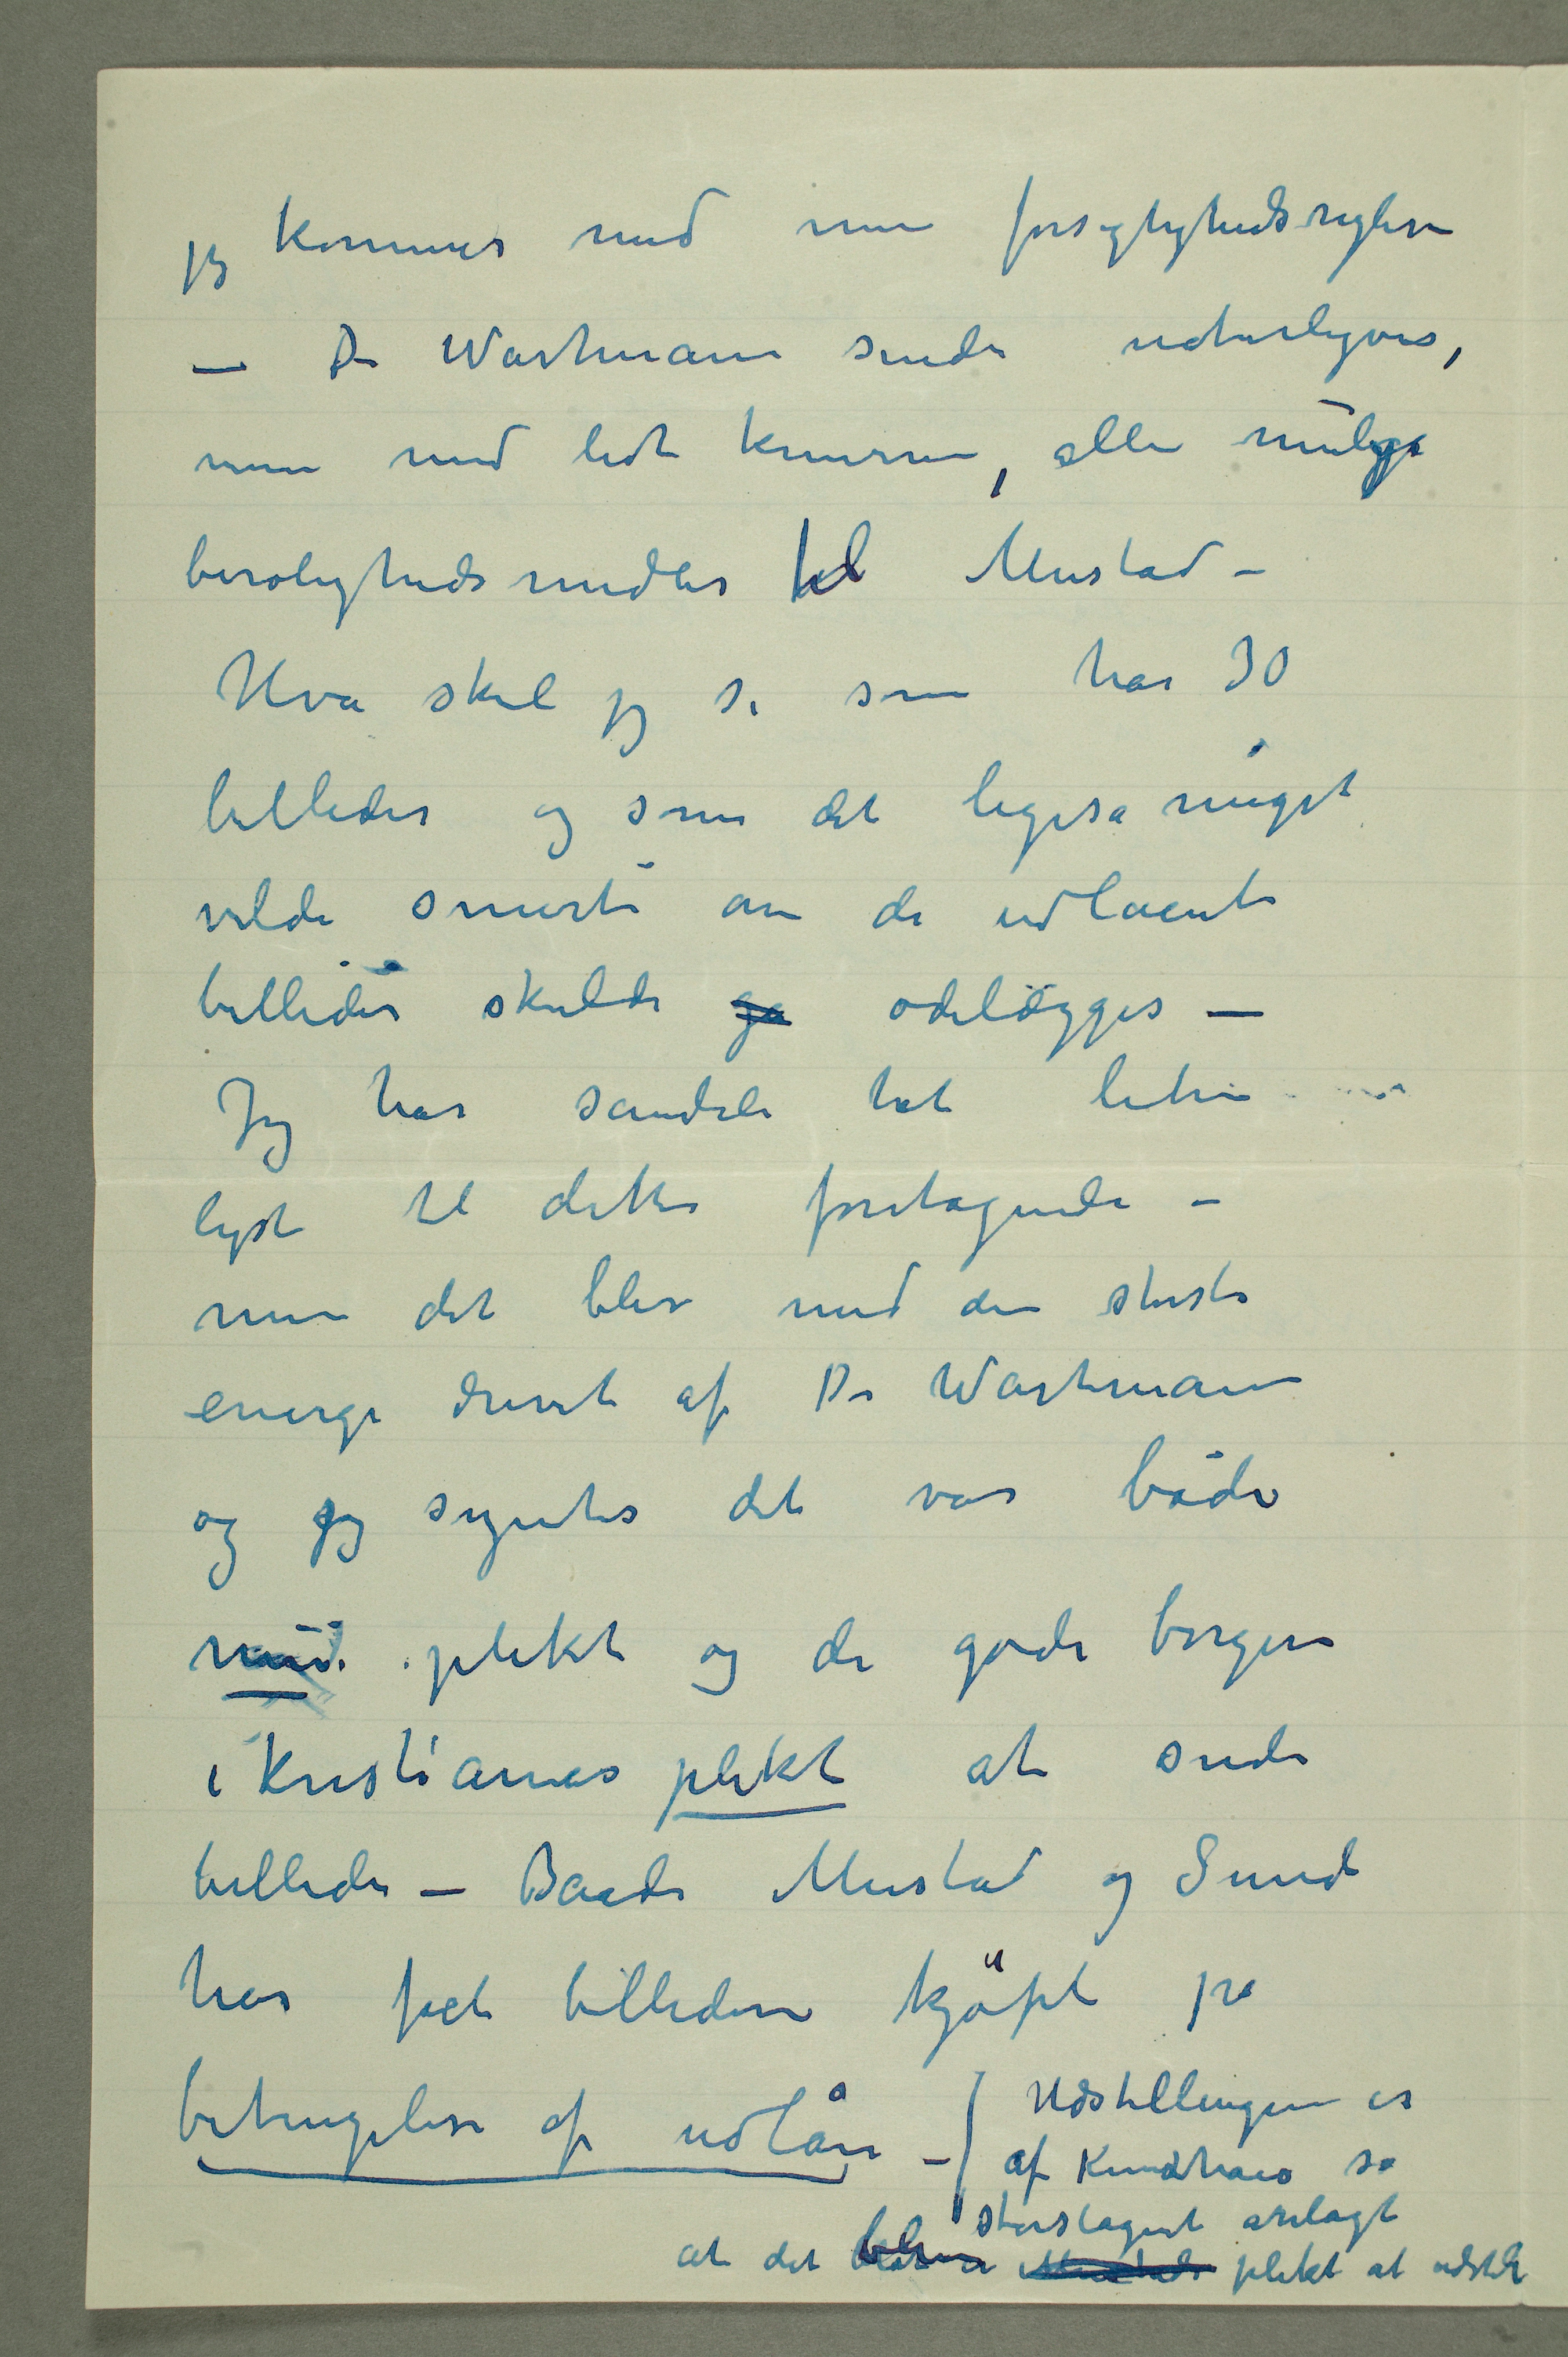 jeg kommer med mine forsigtighedsregler
– Dr Wartmann sender naturligvis,
men med lidt knurren, alle mulige
beroligheds midler til Mustad –
Hva skal jeg si som har 70
billeder og som det ligesa meget
vilde smerte om de udlaente
billeder skulde ga ødelægges –
Jeg har sandeli hat liten
lyst til dette foretagende –
men det blev med den største
energi drevet af Dr Wartmann
og jeg syntes det var både
min plikt og de gode borgere
i Kristianias plikt at sende
billeder – Baade Mustad og Sund
har faet billederne kjöpt pa
betingelse af udlån – Udstillingen er
af Kunsthaus sa
storslagent anlagt
at det blir en Mustads plikt at udstille